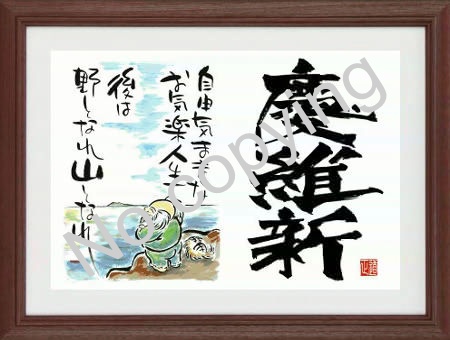 慶維新
自由気ままな
お気楽人生
後は
野となれ山となれ
No copying